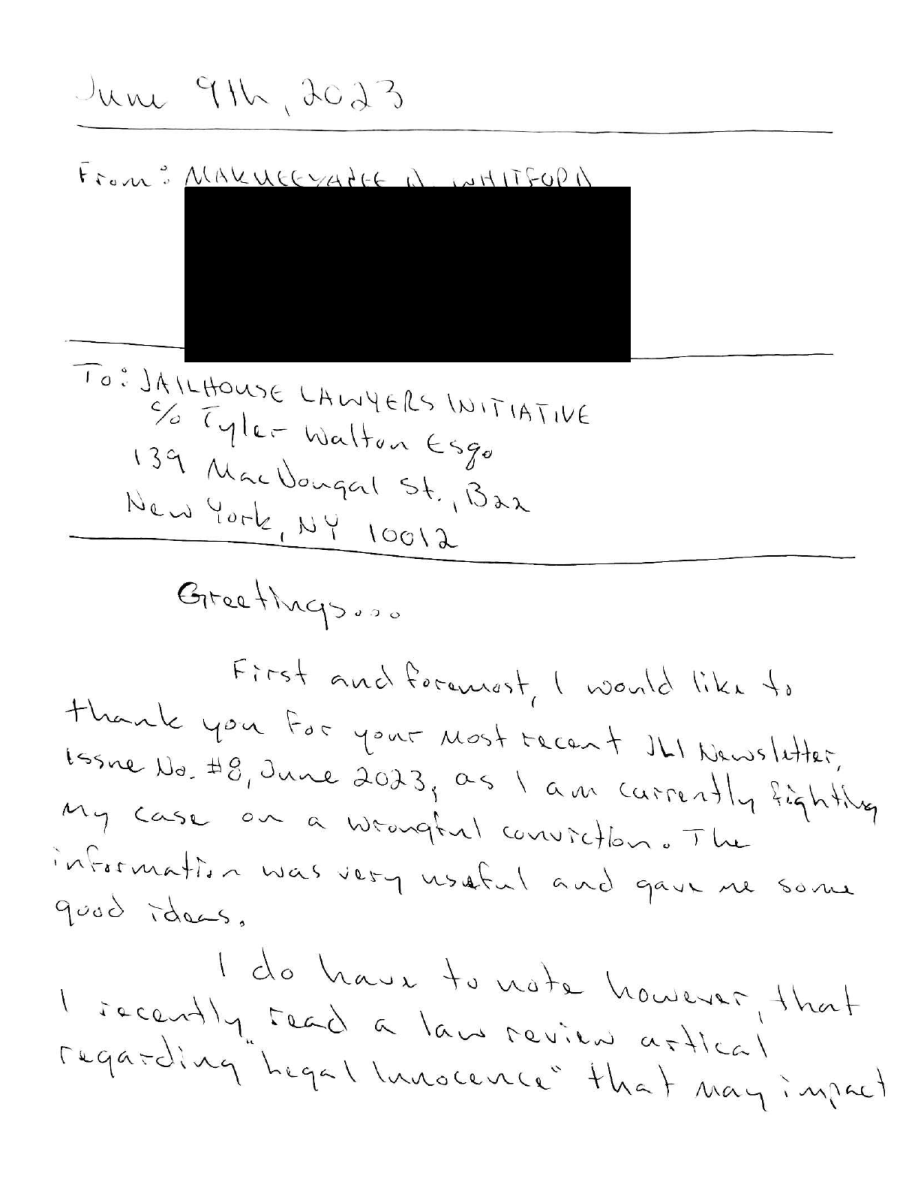 June 9th, 2023
From:
To: JAILHOUSE LAWYERS INITIATIVE
c/o Tyler Walton Esq.
139 MacDougal St., B22
New York, NY 10012
Greetings...
First and foremost, I would like to
thank you For your Most recent JLI Newsletter,
Issue No. #8, June 2023, as I am currently fighting
My case on a wrongful conviction. The
information was very useful and gave me some
good ideas.
I do have to note however, that
I recently read a law review artical
regarding "Legal Innocence" that may impact